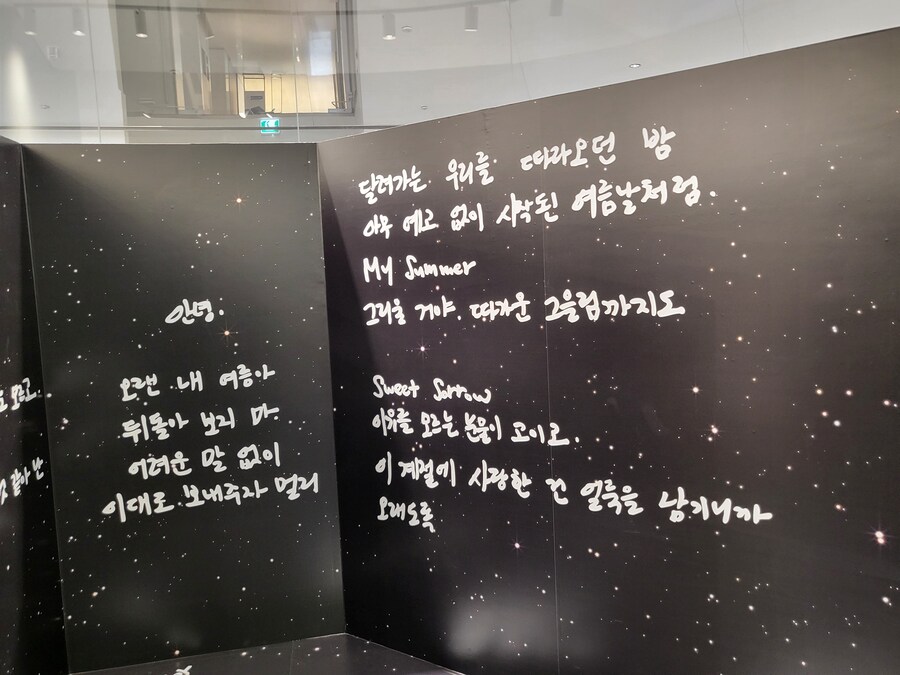 안녕.
오랜 내 여름아
뒤돌아 보지 마
어려운 말 없이
이대로 보내주자 멀리
달려가는 우리를 따라오던 밤
아무 예고 없이 시작된 여름날처럼.
My Summer
그리울 거야. 따가운 그을림까지도
Sweet Sorrow
이유를 모르는 눈물이 고이고.
이 계절에 사랑한 건 얼룩을 남기니까
오래도록